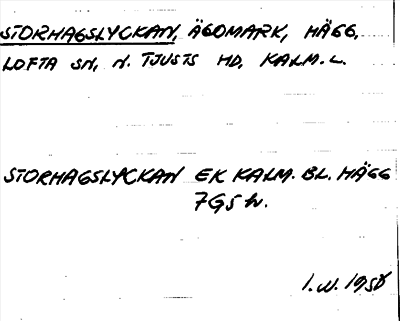 STORHAGSLYCKAN, ÄGOMARK, HÄGG,
LOFTA SN, N. TJUSTS HD, KALM. L.
STORHAGSLYCKAN EK KALM. BL. HÄGG
7G5h.
I.W. 1958